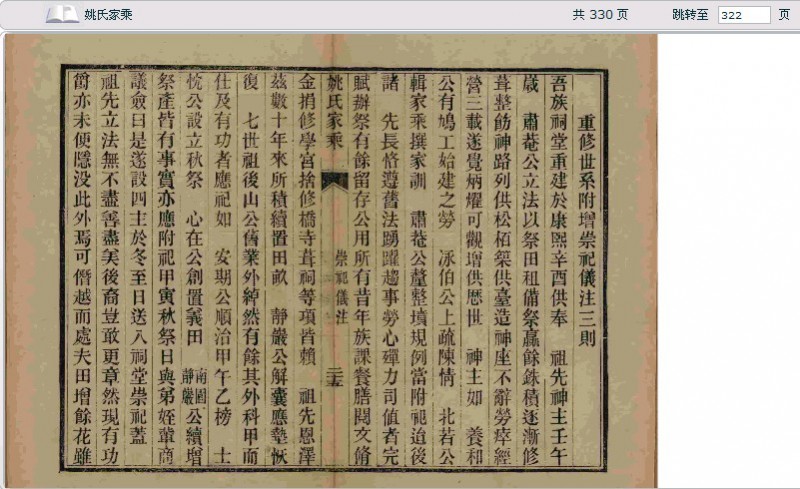 姚氏家乘
共 330 页
跳转至 322 页
重修世系附增崇祀儀注三則
吾族祠堂重建於康熙辛酉供奉 祖先神主壬午
歲 肅菴公立法以祭田租備祭贏餘銖積逐漸修
葺整飭神路列供松栢築供臺造神座不辭勞瘁經
營三載遂覺炳耀可觀增供歷世 神主如 養和
公有鳩工始建之勞 泳伯公上疏陳情 北若公
輯家乘撰家訓 肅菴公釐整墳規例當附祀迨後
諸 先長恪遵舊法踴躍趨事勞心殫力司值者完
賦辦祭有餘留存公用所有昔年族課餐膳閱文脩
姚氏家乘 崇祀儀注 二五
金捐修學宮捨修橋寺葺祠等項皆賴 祖先恩澤
茲數十年來所積續置田畝 靜巖公解囊應墊恢
復 七世祖後山公舊業外綽然有餘其外科甲而
仕及有功者應祀如 安期公順治甲午乙榜 士
忱公設立秋祭 心在公創置義田 南園靜巖公續增
祭產皆有事實亦應附祀甲寅秋祭日與弟姪輩商
議僉曰是遂設四主於冬至日送入祠堂崇祀蓋
祖先立法無不盡善盡美後裔豈敢更章然現有功
爵亦未便隱没此外焉可僭越而處夫田增餘花雖